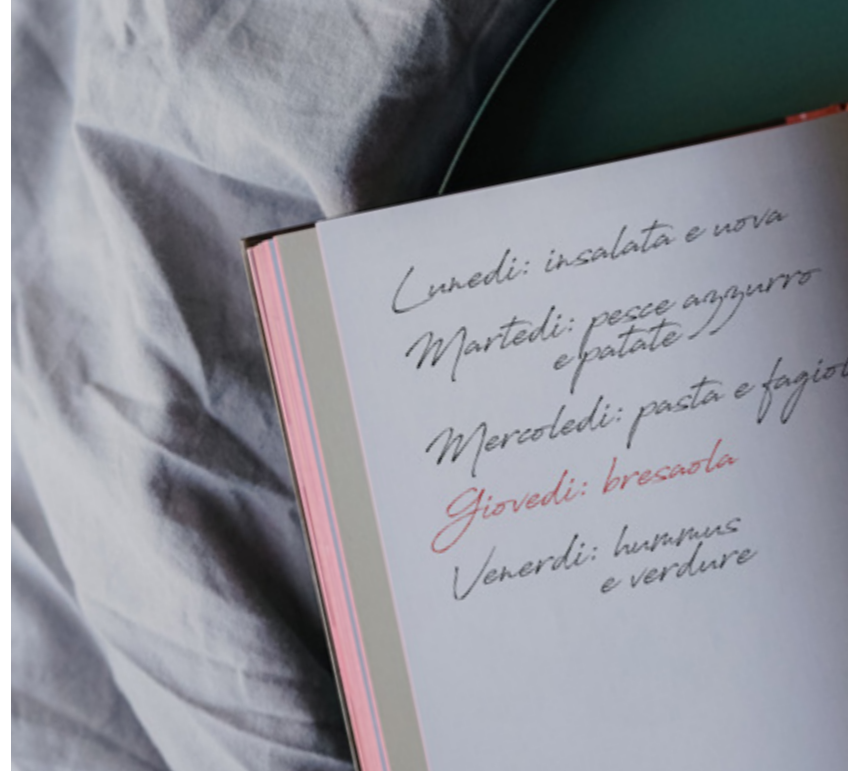 Lunedi: insalata e uova
Martedi: pesce azzurro
e patate
Mercoledi: pasta e
Giovedi: bresaola
Venerdi: hummus
e verdure